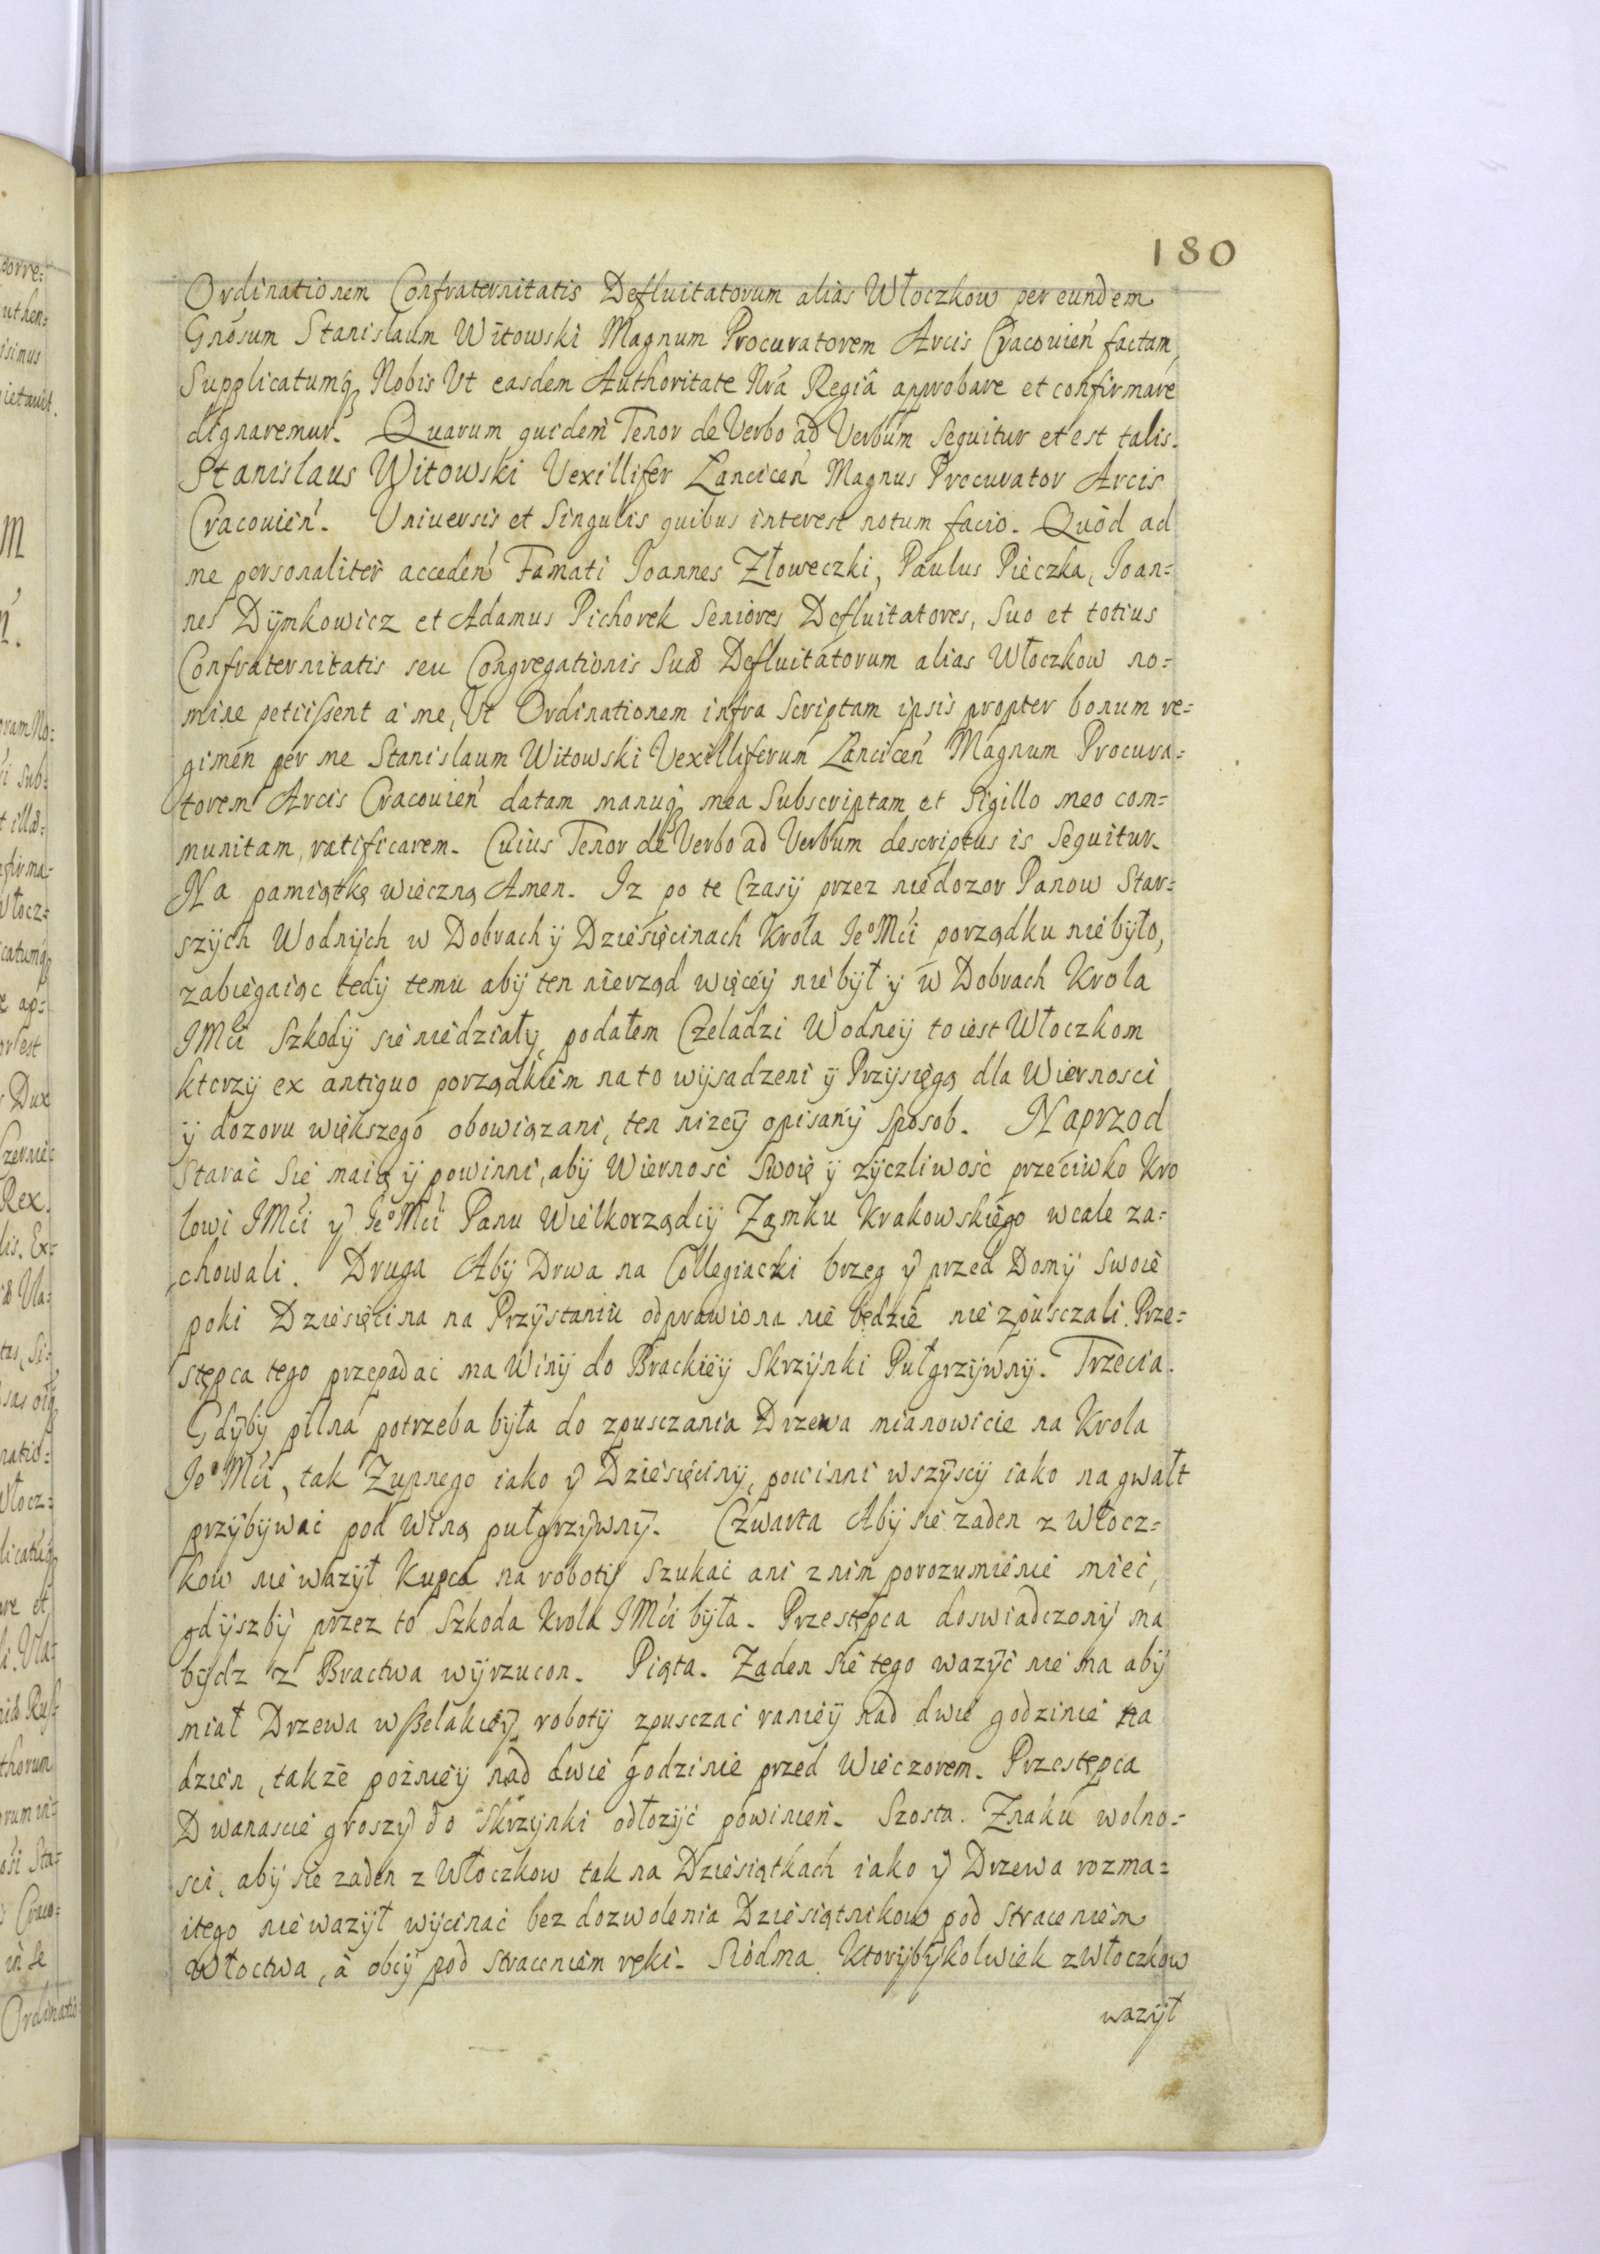 180
Ordinationem Confraternitatis Defluitatorum alias Włoczkow per eundem
Gnosum Stanislaum Witowski Magnum Procuratorem Arcis Cracouień factam,
Supplicatumq Nobis Vt easdem Authoritate Nrâ Regiâ approbare et confirmare
dignaremur. Quarum quidem Tenor de Verbo ad Verbum Sequitur et est talis.
Stanislaus Witowski Vexillifer Lanciceń Magnus Procurator Arcis
Cracouień. Vniuersis et Singulis quibus interest notum facio. Quod ad
me personaliter accedeń Famati Joannes Złoweczki, Paulus Pieczka, Joan=
nes Dymkowicz et Adamus Pichorek Seniores Defluitatores, Suo et totius
Confraternitatis seu Congregationis Suæ Defluitatorum alias Włoczkow no=
mine petiißent à me, Vt Ordinationem infra Scriptam ipsis propter bonum re=
gimen per me Stanislaum Witowski Vexilliferum Lanciceń Magnum Procura=
torem Arcis Cracouień datam manuq mea Subscriptam et Sigillo meo com=
munitam, ratificarem. Cuius Tenor de Verbo ad Verbum descriptus is Sequitur.
Na pamiątkę wieczną Amen. Iz po te Czasy przez niedozor Panow Star=
szych Wodnych w Dobrach ÿ Dziesięcinach Krola Jeº Mći porządku nie było,
zabiegaiąc tedy temu aby ten nierząd więcey nie był y w Dobrach Krola
JMći Szkody sie niedziały, podałem Czeladzi Wodney to iest Włoczkom
ktorzy ex antiquo porządkiem na to wysadzeni ÿ Przysięgą dla Wiernosci
ÿ dozoru większego obowiązani, ten nizeÿ opisany Sposob. Naprzod
Starać Sie maią ÿ powinni, aby Wiernosć Swoię ÿ zyczliwosc przeciwko Kro
lowi JMći y Jeº Mći Panu Wielkorządcy Zamku Krakowskiego wcale za=
chowali. Druga Aby Drwa na Collegiacki brzeg y przed Domy Swoie
poki Dziesięcina na Przystaniu odprawiona nie będzie nie zpusczali. Prze=
stępca tego przepadać ma Winy do Brackiey Skrzynki Pułgrzywny. Trzecia.
Gdyby pilna potrzeba była do zpusczania Drzewa mianowicie na Krola
Jeº Mći, tak Zupnego iako y Dziesięciny, powinni wszyscy iako na gwałt
przybywać pod Winą pułgrzywny. Czwarta Aby sie zaden z Włocz=
kow nie wazył Kupca na roboty Szukać ani z nim porozumienie mieć,
gdyszby przez to Szkoda Krola JMći była. Przestępca doswiadczony ma
bydz z Bractwa wyrzucon. Piąta. Zaden sie tego wazyć nie ma aby
miał Drzewa wßelakiey roboty zpusczać raniey nad dwie godzinie na
dzien, takze pozniey nad dwie godzinie przed Wieczorem. Przestępca
Dwanascie groszy do Skrzynki odłozyć powinien. Szosta. Znaku wolno=
sci, aby sie zaden z Włoczkow tak na Dziesiątkach iako y Drzewa rozma=
itego nie wazył wycinać bez dozwolenia Dziesiątnikow pod Straceniem
Włoctwa, à obcy pod straceniem ręki. Siodma. Ktorybykolwiek z Włoczkow
wazył